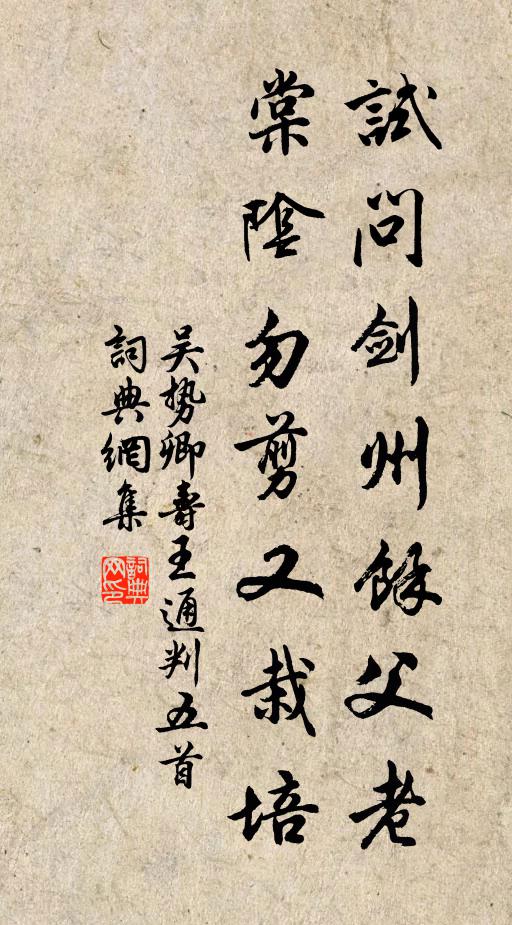 試問劍州餘父老
棠陰勿剪又栽培
吴势卿壽王通判五首
詞典網集
詞典網印